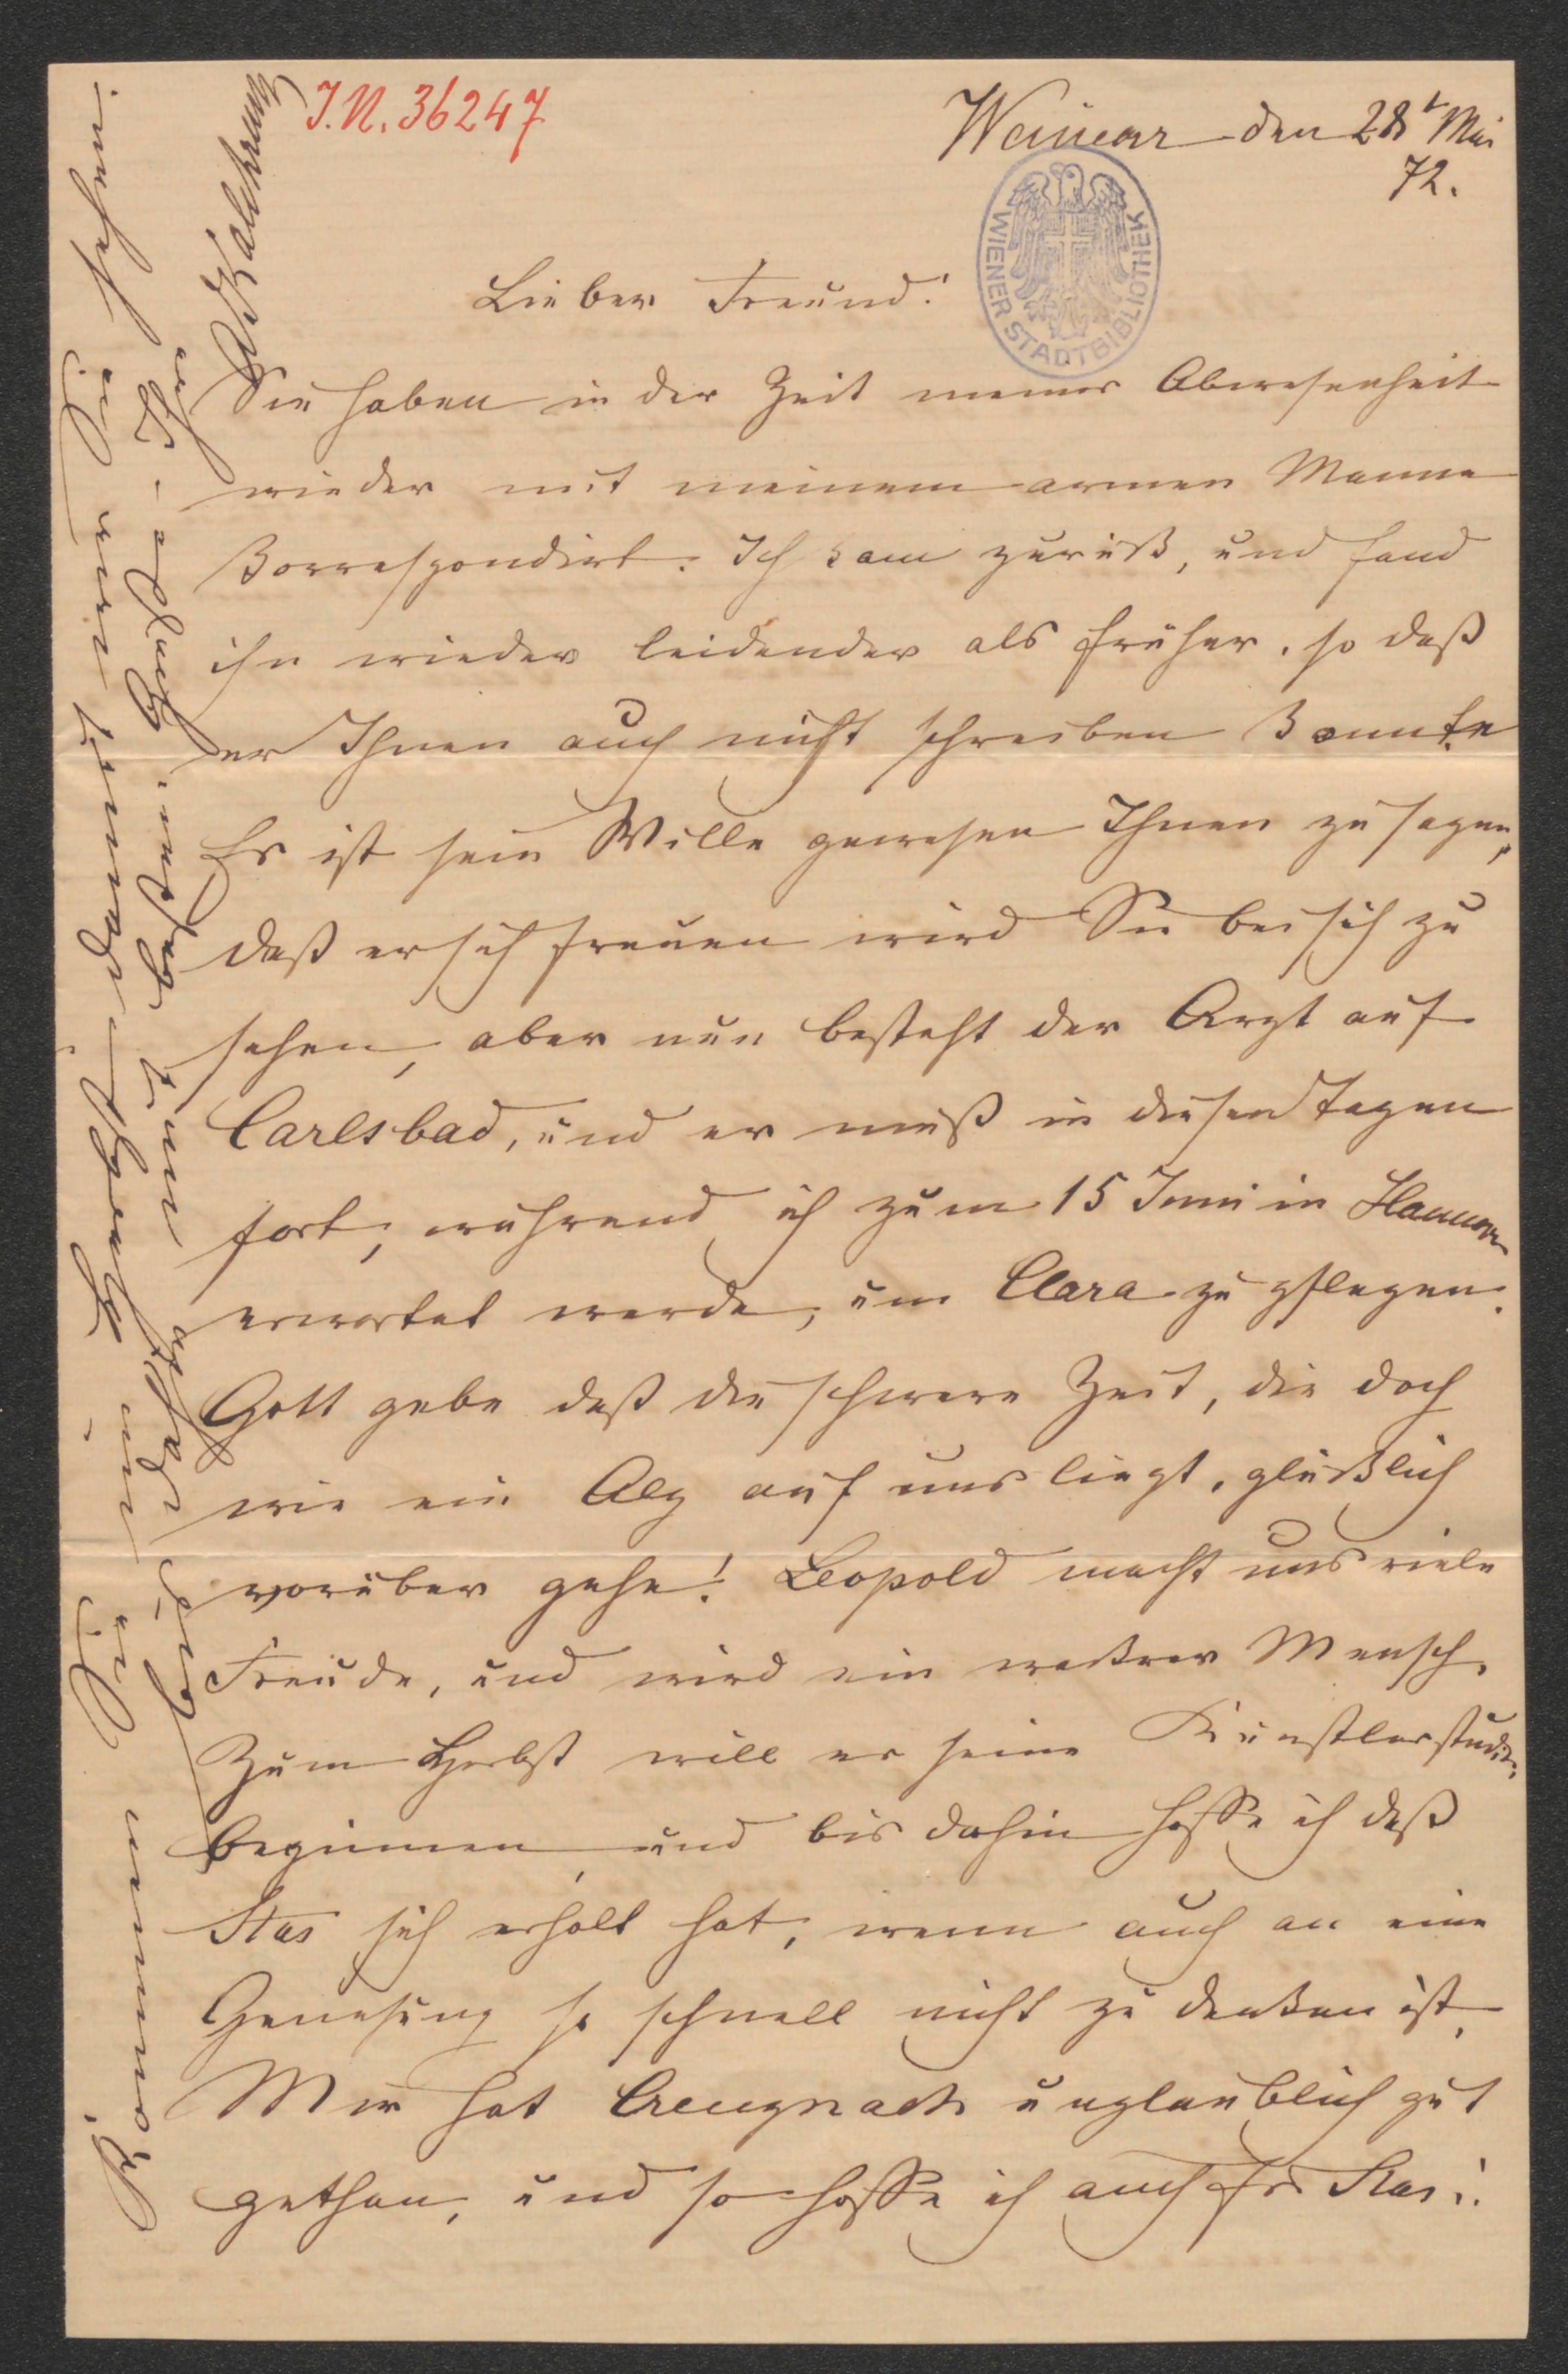 J.N. 36247
Weimar den 28t Mai
72.
WIENER STADTBIBLIOTHEK
Lieber Freund!
Sie haben in der Zeit meiner Abwesenheit
wieder mit meinem armen Manne
korrespondirt. Ich kam zurück, und fand
ihn wieder leidender als früher, so daß
er Ihnen auch nicht schreiben konnte
Es ist sein Wille gewesen Ihnen zu sagen,
daß er sich freuen wird Sie bei sich zu
sehen, aber nun besteht der Arzt auf
Carlsbad, und er muß in diesen Tagen
fort, während ich zum 15 Juni in Hannover
erwartet werde, um Clara zu pflegen.
Gott gebe daß die schwere Zeit, die doch
wie ein Alp auf uns liegt, glücklich
vorüber gehe! Leopold macht uns viele
Freude, und wird ein wackrer Mensch.
Zum Herbst will er seine Künstlerstud.
beginnen, und bis dahin hoffe ich daß
Stas sich erholt hat, wenn auch an eine
Genesung so schnell nicht zu denken ist.
Mir hat Creuznach unglaublich gut
gethan, und so hoffe ich auch für Stas.
Kalckreuth